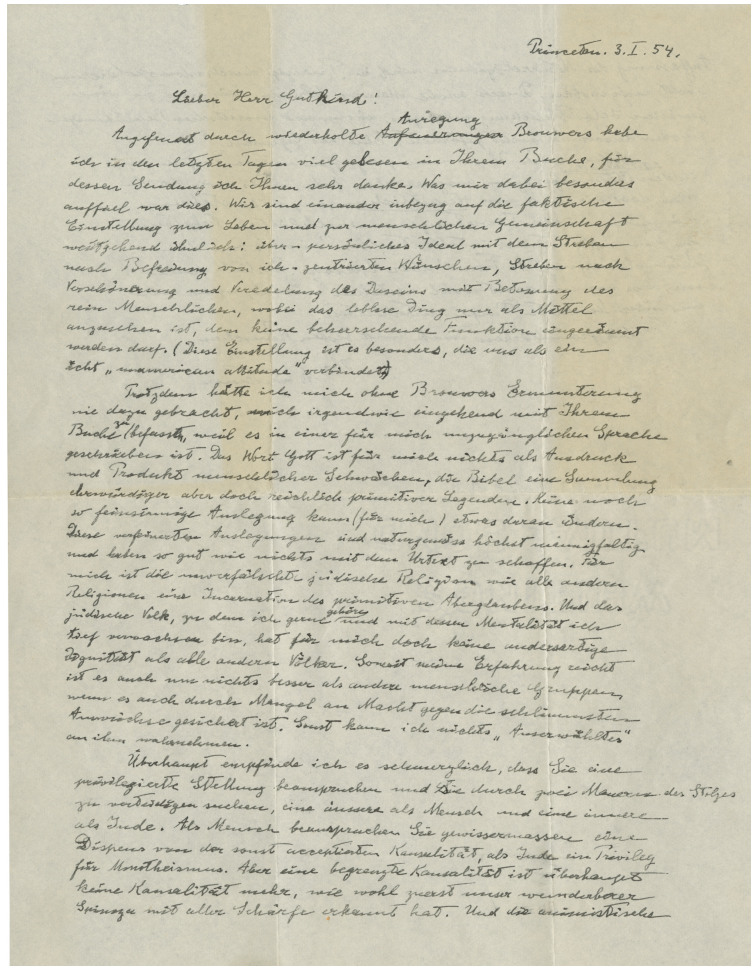 Princeton. 3. I. 54.
Lieber Herr Gutkind!
Anregung
Angefeuert durch wiederholte Brouwers habe
ich in den letzten Tagen viel gelesen in Ihrem Buche, für
dessen Sendung ich Ihnen sehr danke. Was mir dabei besonders
auffiel war dies. Wir sind einander inbezug auf die faktische
Einstellung zum Leben und zur menschlichen Gemeinschaft
weitgehend ähnlich: über-persönliches Ideal mit dem Streben
nach Befreiung von ich-zentrierten Wünschen, Streben nach
Verschönerung und Veredelung des Daseins mit Betonung des
rein Menschlichen, wobei das leblose Ding nur als Mittel
anzusehen ist, dem keine beherrschende Funktion eingeräumt
werden darf. (Diese Einstellung ist es besonders, die uns als ein
ächt „unamerican attitude" verbindet)
Trotzdem hätte ich mich ohne Brouwers Ermunterung
nie dazu gebracht, mich irgendwie eingehend mit Ihrem
Buche zu befassen, weil es in einer für mich unzugänglichen Sprache
geschrieben ist. Das Wort Gott ist für mich nichts als Ausdruck
und Produkt menschlicher Schwächen, die Bibel eine Sammlung
ehrwürdiger aber doch reichlich primitiver Legenden. Keine noch
so feinsinnige Auslegung kann (für mich) etwas daran ändern.
Diese verfeinerten Auslegungen sind naturgemäss höchst mannigfaltig
und haben so gut wie nichts mit dem Urtext zu schaffen. Für
mich ist die unverfälschte jüdische Religion wie alle anderen
Religionen eine Incarnation des primitiven Aberglaubens. Und das
jüdische Volk, zu dem ich gerne gehöre und mit dessen Mentalität ich
tief verwachsen bin, hat für mich doch keine andersartige
Dignität als alle anderen Völker. Soweit meine Erfahrung reicht
ist es auch um nichts besser als andere menschliche Gruppen,
wenn es auch durch Mangel an Macht gegen die schlimmsten
Auswüchse gesichert ist. Sonst kann ich nichts „Auserwähltes"
an ihm wahrnehmen.
Überhaupt empfinde ich es schmerzlich, dass Sie eine
privilegierte Stellung beanspruchen und sie durch zwei Mauern des Stolzes
zu verteidigen suchen, eine äussere als Mensch und eine innere
als Jude. Als Mensch beanspruchen Sie gewissermassen eine
Dispens von der sonst acceptierten Kausalität, als Jude ein Privileg
für Monotheismus. Aber eine begrenzte Kausalität ist überhaupt
keine Kausalität mehr, wie wohl zuerst unser wunderbarer
Spinoza mit aller Schärfe erkannt hat. Und die animistische